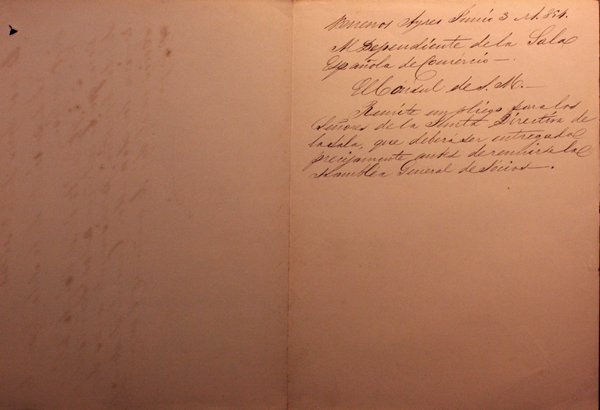 Buenos Ayres Junio 3 de 1854.
Al Dependiente de la Sala
Española de Comercio.
El Consul de S. M.
Remite un pliego para los
Señores de la Junta Directiva de
la Sala, que deberá ser entregado
precisamente antes de reunirse la
Asamblea General de Socios.